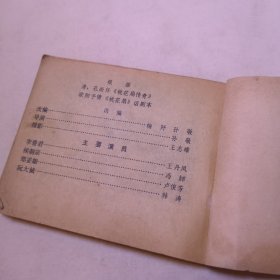 根据
清、孔尚任《桃花扇传奇》
欧阳予倩《桃花扇》话剧本
改编
改编 梅阡 孙敬
导演 孙敬
摄影 王志雄
主要演员
李香君 王丹凤
侯朝宗 冯喆
郑妥娘 卢
阮大铖 韩涛